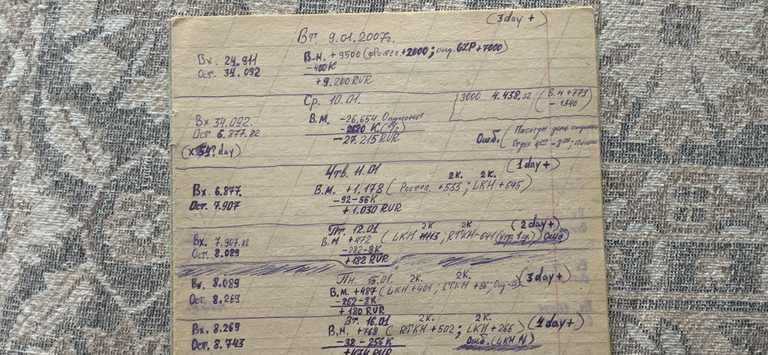 (3 day +)
Вт 9.01.2007г.
Вх. 24.911 В.М. +9500 (+2000; опц. GZP +7000)
Ост. 34.092 -400к
+9.200 RUR
Ср. 10.01. 3000 4.438,32 (В.М +773
-1340)
Вх 34.092. В.М. -26.654 Опционы
Ост 6.877.82
-27.215 RUR Ошб. (
day)
Чтв. 11.01 (1 day +)
2К. 2К.
Вх. 6.877. В.М. +1.178 (Ростел. +533; LKH +645)
Ост. 7.907 -92-56к
+1.030 RUR
Пт. 12.01 (2 day +)
2К 2К
Вх. 7.907.82 В.М +472 (LKH; RTKH -641
Ост. 8.089 -282-8к
+182 RUR
Пн. 15.01 2К. 2К. 3 day +)
Вх. 8.089 В.М. +487 (LKH +401;
Ост. 8.269 -262-8к
+180 RUR
Вт. 16.01 2К. 2К. (4 day +)
Вх. 8.269 В.М. +768 (RTKH +502; LKH +266)
Ост. 8.743 -38-256к Ошб. (LKH
+474 RUR